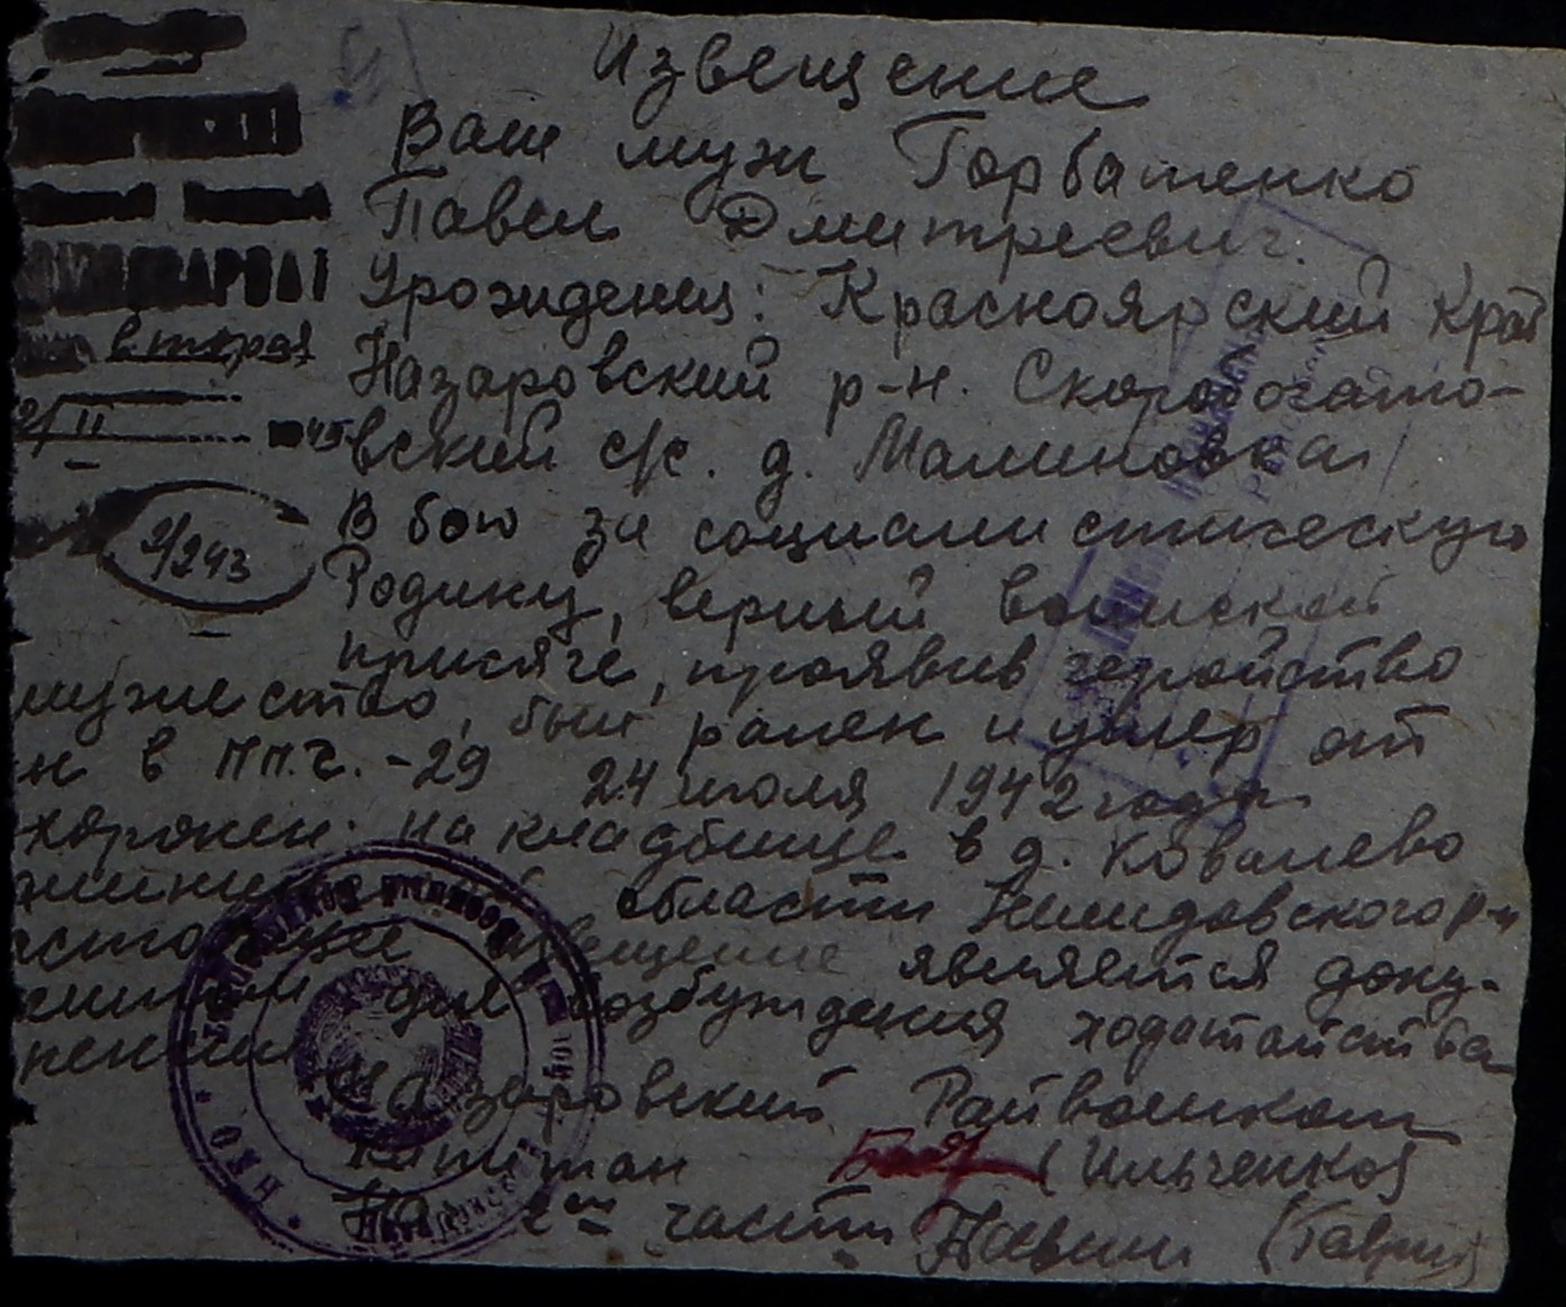 Извещение
Ваш муж Горбатенко
Павел Дмитреевич.
Урожденец: Красноярский Край
Назаровский р-н. Скоробогато-
вский с/с. д. Малиновка
вторая
2/II 45
2/243
В бою за социалистическую
Родину, верный воинской
присяге, проявив геройство
мужество, был ранен и умер от
н в ПП.Г. -29 24 июля 1942 года
хоронен на кладбище в д. Ковалево
области Нелидовского р-н
извещение является доку-
ментом для возбуждения ходатайства
пенсии
Назаровский Райвоенком
Капитан (Ильченко)
На 2ой части
НКО